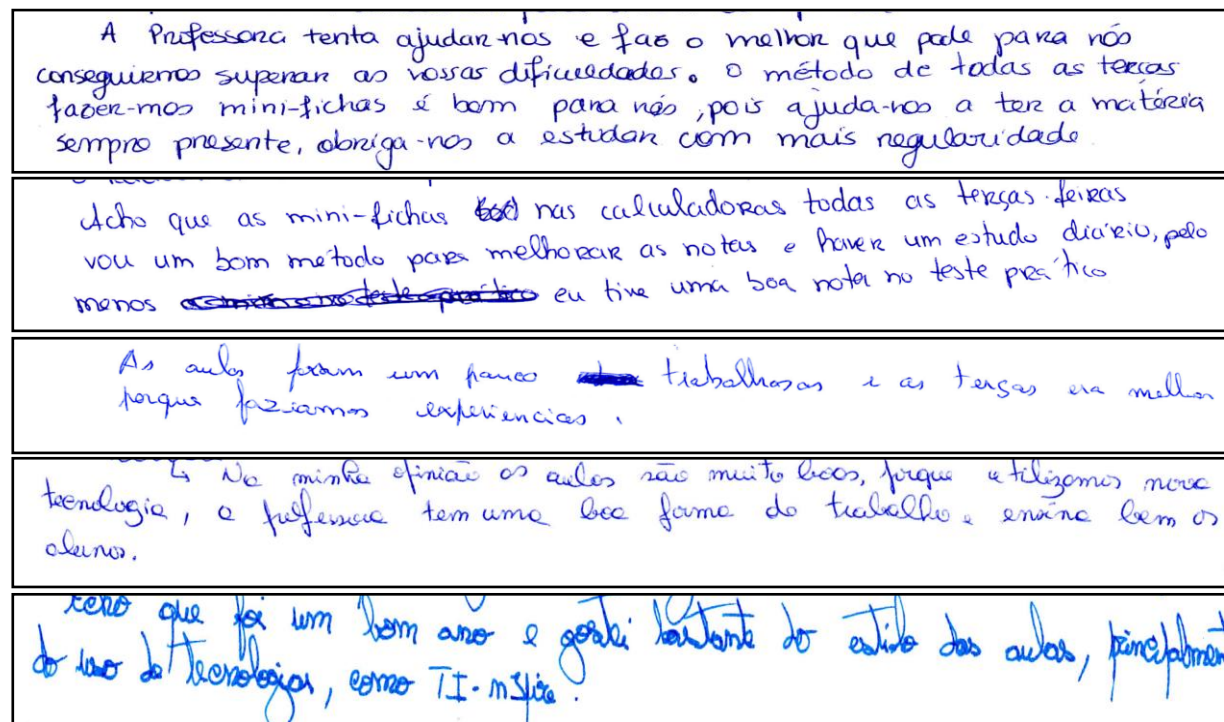 A Professora tenta ajudar-nos e faz o melhor que pode para nós
conseguirmos superar as nossas dificuldades. O método de todas as terças
fazer-mos mini-fichas é bom para nós, pois ajuda-nos a ter a matéria
sempre presente, obriga-nos a estudar com mais regularidade
Acho que as mini-fichas nas calculadoras todas as terças-feiras
vou um bom método para melhorar as notas e haver um estudo diário, pelo
menos eu tive uma boa nota no teste prático
As aulas foram um pouco trabalhosas e as terças era melhor
porque faziamos experiencias.
↳ Na minha opinião as aulas são muito boas, porque utilizamos nova
tecnologia, a professora tem uma boa forma de trabalho e ensina bem os
alunos.
que foi um bom ano e gostei bastante do estilo das aulas, principalment
do uso de tecnologias, como TI-nSpire.